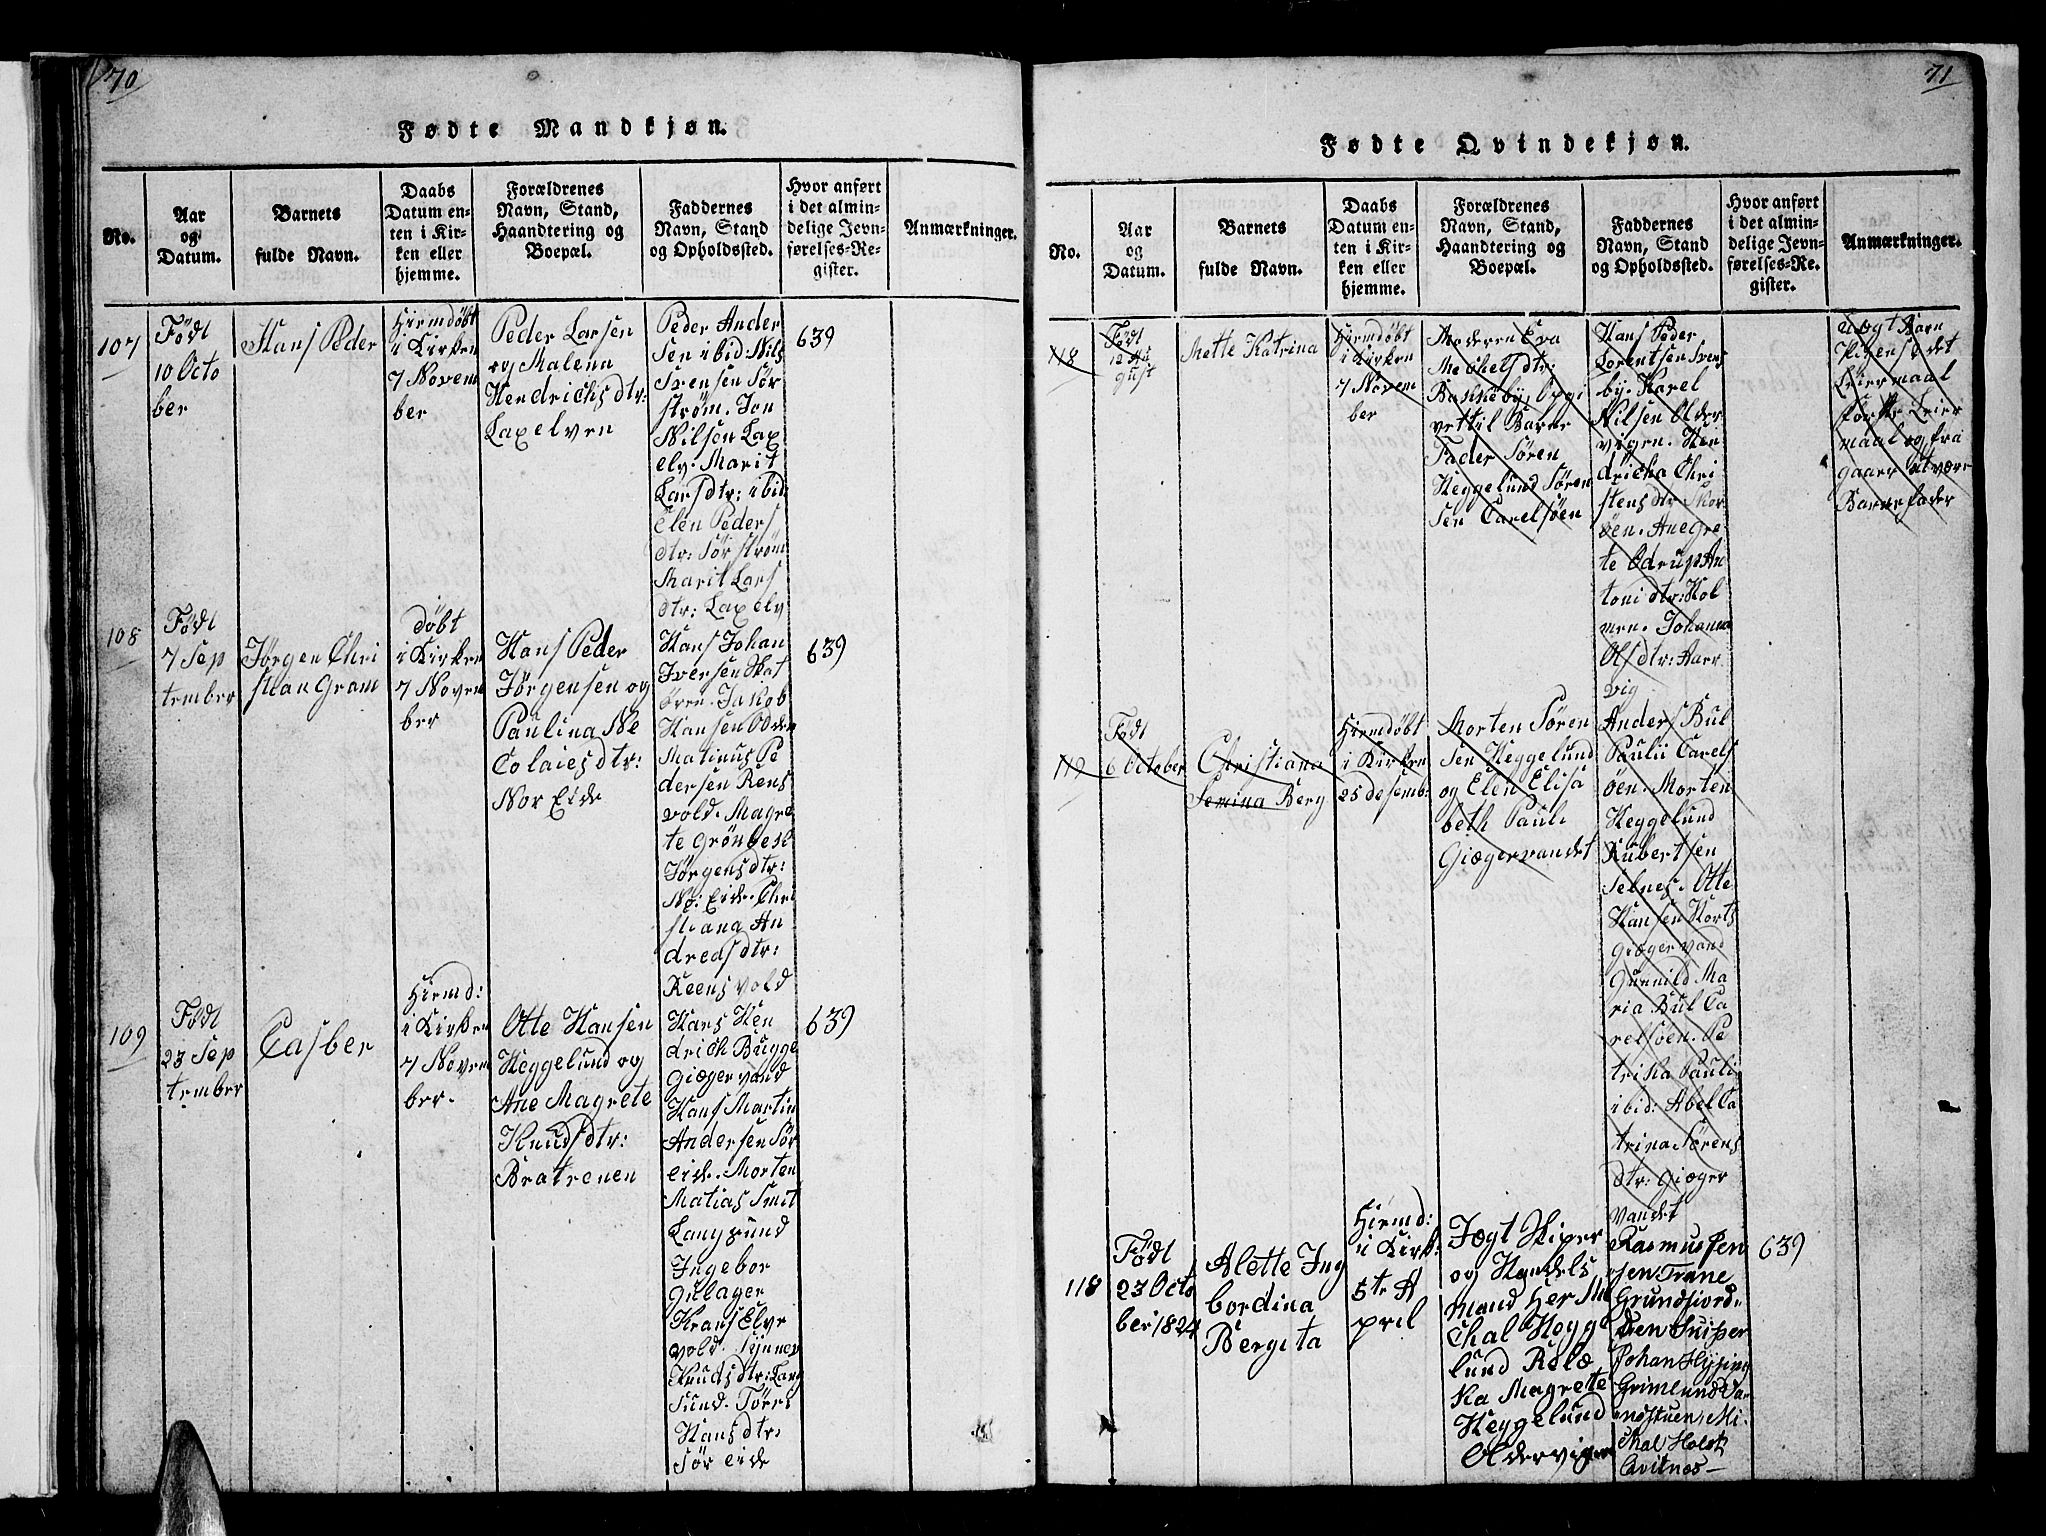 70
Fødte Mandkjøn.
No.
Aar
og
Datum.
Barnets
fulde Navn.
Daabs
Datum en-
ten i Kir-
ken eller
hjemme.
Forældrenes
Navn, Stand,
Haandtering og
Boepæl.
Faddernes
Navn, Stand
og Opholdssted.
Hvor anført
i det almin-
delige Jevn-
førelses-Re-
gister.
Anmærkninger.
107
Født
10 Octo
ber
Hans Peder
Hiemdøbt
i Kirken
7 Novem
ber
Peder Larsen
og Malena
Hendrichsdtr:
Laxelven
Peder Ander
sen ibid Nils
Svensen Sør
strøm. Jon
Nilsen Lax
elv. Marit
Larsdtr: ibid
Elen Peders
dtr: Sørstrøm
Marit Lars
dtr: Laxelv
639
108
Født
7 Sep
tember
Jørgen Chri
stian Gram
døbt
i Kirken
7 Novem
ber
Hans Peder
Jørgensen og
Paulina Ne
Colaiesdtr:
Nor Eide
Hans Johan
Iversen Kat
øren. Jakob
Hansen Odden
Matinus Pe
dersen Rens
vold. Magre
te Grønbesl
Jørgensdtr:
No: Eide. Chri
stiana An
dreasdtr:
Reensvold
639
109
Født
23 Sep
tember
Casber
Hiemd:
i Kirken
7 Novem
ber.
Otte Hansen
Heggelund og
Ane Magrete
Knudsdtr:
Bratrenen
Hans Hen
drich Bugge
Giægervand
Hans Martin
Andersen Sør
eide. Morten
Matias Smit
Langsund
Ingebor
Gulager
Krans Elve
vold.
Knudsdtr: Lang
sund.
Hansdtr:
Sør eide
639
71
Fødte Qvindekjøn.
No.
Aar
og
Datum.
Barnets
fulde Navn.
Daabs
Datum en-
ten i Kir-
ken eller
hjemme.
Forældrenes
Navn, Stand,
Haandtering og
Boepæl.
Faddernes
Navn, Stand
og Opholdssted.
Hvor anført
i det almin-
delige Jevn-
førelses-Re-
gister.
Anmærkninger.
118
Født
12 Au
gust
Mette Katrina
Hiemdøbt
i Kirken
7 Novem
ber
Moderen Eva
Mechelsdtr:
Bakkeby, Opgi
vet til Barne
Fader Søren
Heggelund Søren
sen Carelsøen
Hans Peder
Lorentsen Svens
by. Karel
Nilsen Older
vigen. Hen
dricha Chri
stensdtr Skor
øen. Anegre
te Odrup An
tonidtr: Hol
men. Johanna
Olsdtr: Aarr
vig
Uægt Barn
Pigens det
Leiermaal
første Leier
maal og fra
gaaer at være
Barnefader
119
Født
6 October
Christiana
Semina Berg
Hiemdøbt
i Kirken
25 desemb:
Morten Søren
sen Heggelund
og Elen Elisa
beth Pauli
Giægervandet
Anders Bul
Paulii Carels
øen. Morten
Heggelund
Kubertsen
Selnes. Otte
Hansen Korts
Giægervand
Gunnild Ma
ria Bul Ca
relsøen. Pe
trika Pauli
ibid: Abel Ca
trina Sørens
dtr: Giæger
vandet
118
Født
23 Octo
ber 1824
Alette Ing
bordina
Bergita
Hiemd:
i Kirk:
5te A
pril
Jægt Skiper
og Handels
mand Her Mi
chal Hegge
lund
Magrete
Heggelund
Oldervigen
Rasmus Jen
sen Trane
Grundfiord.
Johan Hysing
Grimelund
Mi.
chal Holst
Cavitnes
639